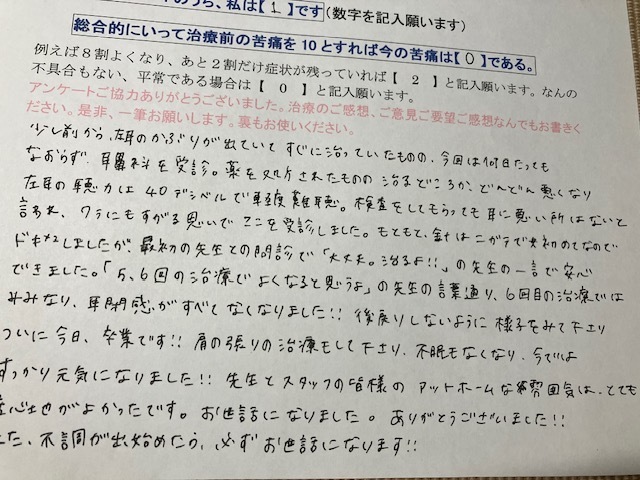 のうち、私は【 1 】です(数字を記入願います)
総合的にいって治療前の苦痛を10とすれば今の苦痛は【 0 】である。
例えば8割よくなり、あと2割だけ症状が残っていれば【 2 】と記入願います。なんの
不具合もない、平常である場合は【 0 】と記入願います。
アンケートご協力ありがとうございました。治療のご感想、ご意見ご要望ご感想なんでもお書きく
ださい。是非、一筆お願いします。裏もお使いください。
少し前から、左耳のかぶりが出ていて すぐに治っていたものの、今回は何日たっても
なおらず、耳鼻科を受診。薬を処方されたものの 治るどころか、どんどん悪くなり
左耳の聴力は 40デシベルで軽度難聴。検査をしてもらっても 耳に悪い所はないと
言われ、ワラにもすがる思いで ここを受診しました。もともと、針は ニガテで 初めてなので
ドキドキしましたが、最初の先生との問診で「大丈夫。治るよ!!」の先生の一言で安心
できました。「5、6回の治療で よくなると思うよ」の先生の言葉通り、6回目の治療では
みみなり、耳閉感がすべて なくなりました!! 後戻りしないように 様子をみて下さり
ついに今日、卒業です!! 肩の張りの治療もして下さり、不眠もなくなり、今では
すっかり元気になりました!! 先生とスタッフの皆様の アットホームな雰囲気は、とても
心地がよかったです。お世話になりました。ありがとうございました!!
た、不調が出始めたら、必ずお世話になります!!